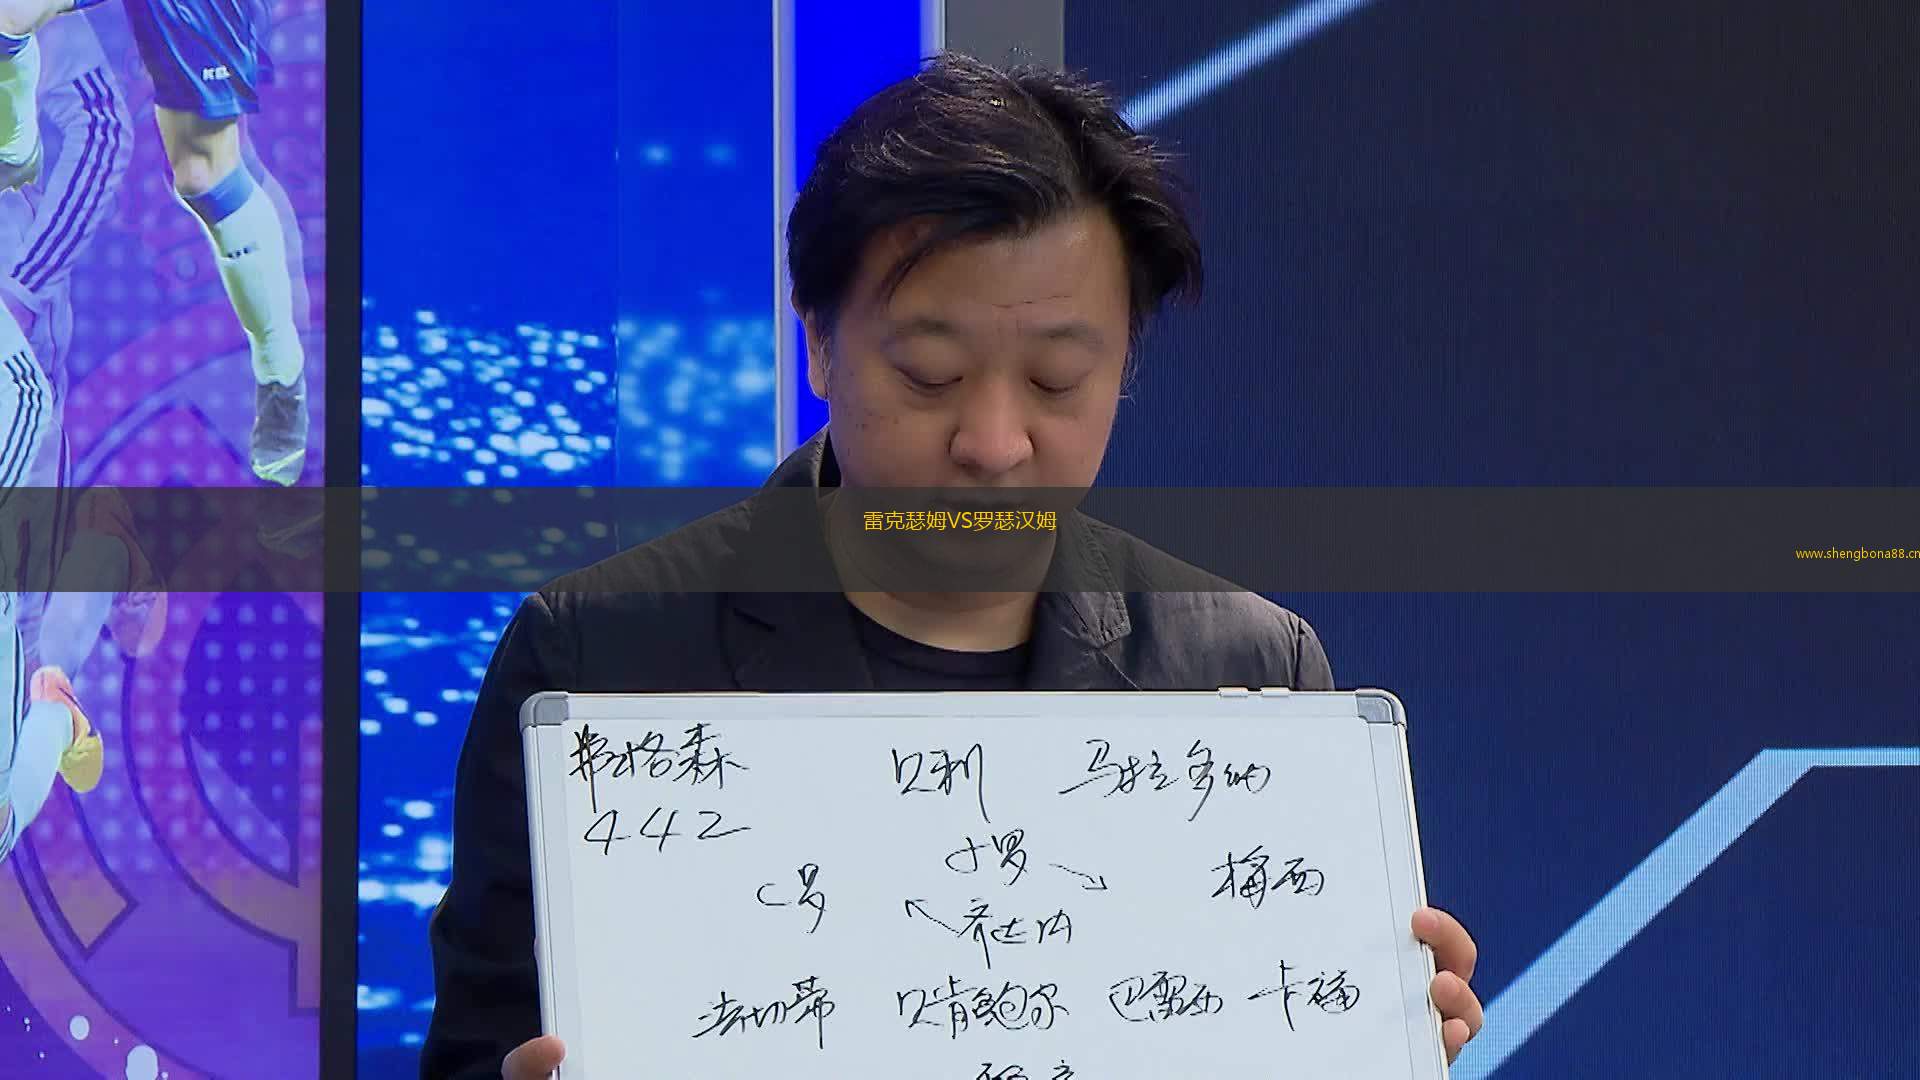 雷克瑟姆VS罗瑟汉姆
www.shengbona88.cn
弗格森 贝利 马拉多纳
442
小罗
C罗 梅西
齐达内
法切蒂 贝肯鲍尔 巴雷西 卡福